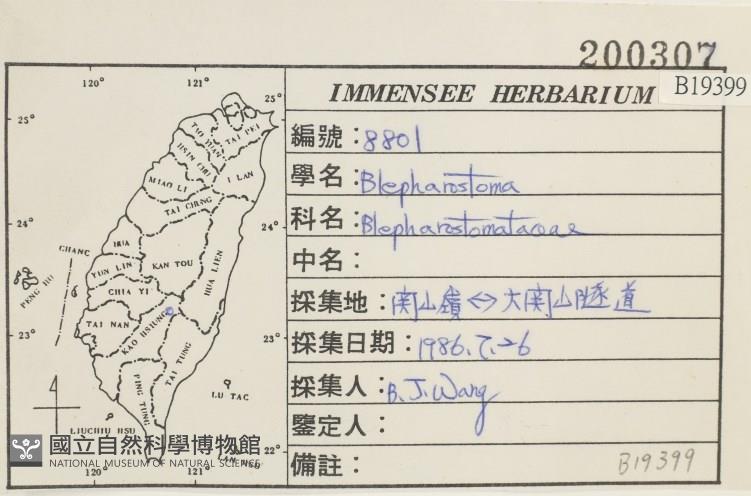 200307
B19399
IMMENSEE HERBARIUM
編號：8801
學名：Blepharostoma
科名：Blepharostomataceae
中名：
採集地：関山嶺⇔大関山隧道
採集日期：1986.7.26
採集人：B.J.Wang
鑒定人：
備註：
B19399
120°
121°
25°
25°
TAO YUAN
TAI PEI
HSIN CHU
MIAO LI
I LAN
TAI CHUNG
24°
24°
CHANG
HUA
YUN LIN
KAN TOU
HUA LIEN
PENG HU
CHIA YI
TAI NAN
KAO HSIUNG
23°
23°
TAI TUNG
PING TUNG
LU TAO
LIUCHIU HSU
22°
120°
121°
國立自然科學博物館
NATIONAL MUSEUM OF NATURAL SCIENCE